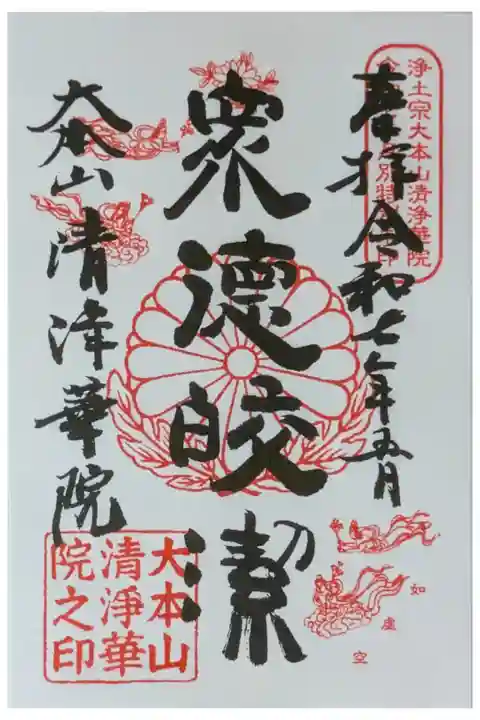 浄土宗大本山清浄華院
奉拝令和七年五月
衆徳皎潔
大本山清浄華院
如虚空
大本山
清淨華
院之印